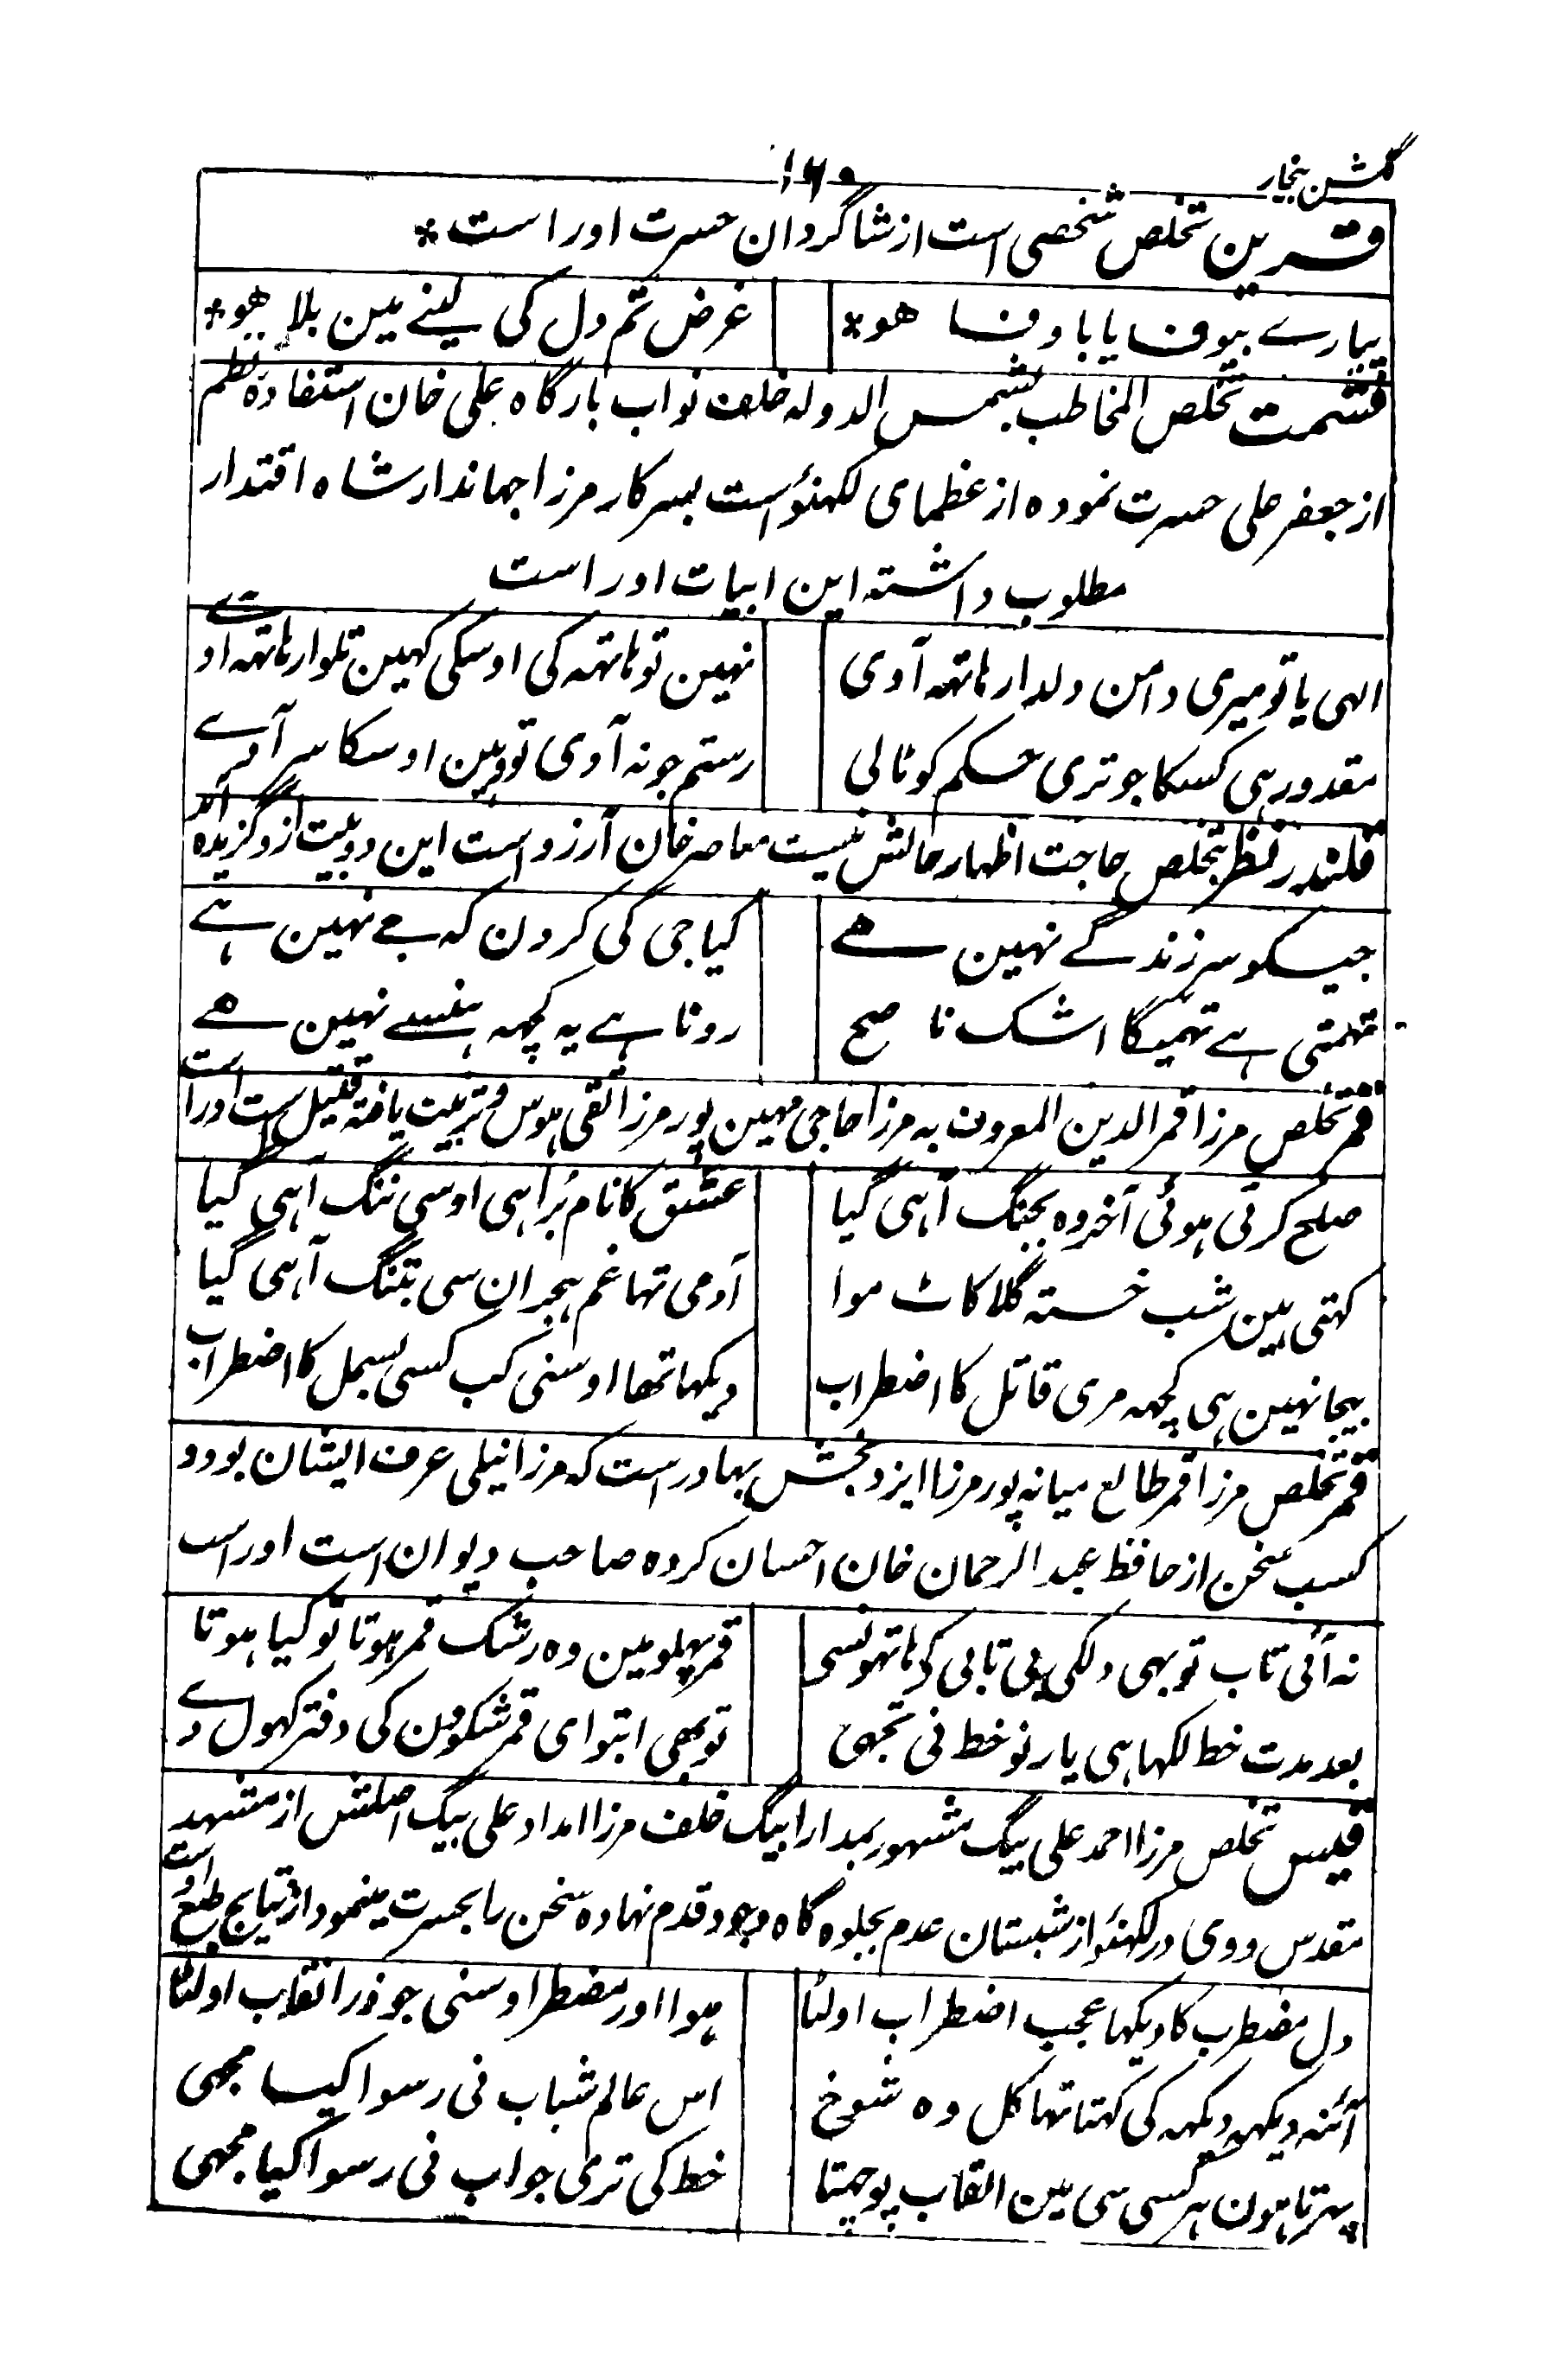 گلشن بیخار
۱۶۰
قرین تخلص شخصی است از شاگردان حسرت اوراست *
پیارے بیوفا یا باوفا ھو * غرض تم دل کی لینے مین بلا ھو *
قسمت تخلص المخاطب بشمس الدوله خلف نواب بارگاه علی خان استفادۂ نظم
از جعفر علی حسرت نموده از عظمای لکهنؤ است بسرکار مرزا جهاندار شاه اقتدار
مطلوب داشته این ابیات اوراست
الہی یا تو میری دامن دلدار ہاتهہ آوی نہین تو ہاتهہ کی اوسکی کہین تلوار ہاتهہ اوے
مقدور ہی کسکا جو تری حکم کو ٹالی رستم جو نہ آوی تو وہین اوسکا سر آوے
قلندر نظر بتخلص حاجت اظهار حالش نیست معاصر خان آرزو است این دو بیت ازو گزیده آمد
جیسکو سر زندگے نہین ہے کیا جی کی کرون کہ جے نہین ہے
تہمتی ہے تہمیگا اشک ناصح رونا ہے یہ کچہہ ہنسے نہین ہے
قمر تخلص مرزا قمر الدین المعروف به مرزا حاجی مهین پور مرزا تقی ہوس و تربیت یافته قتیل است اوراست
صلح کرتی ہوئی آخر وہ بجنگ آہی گیا عشق کا نام بُرا ہی اوسی ننگ آہی گیا
کہتی ہین شب خسته گلا کاٹ موا آدمی تہا غم ہجران سی بتنگ آہی گیا
بیجا نہین ہی کچہہ مری قاتل کا اضطراب دیکہا تھا اوسنی کب کسی بسمل کا اضطراب
قمر تخلص مرزا قمر طالع میانه پور مرزا ایزد بخش بهادر است که مرزا نیلی عرف ایشان بود و
کسب سخن از حافظ عبد الرحمان خان احسان کرده صاحب دیوان است اوراست
نہ آئی تاب تو بہی دلکی بی تابی کی ہاتهونسی قمر پہلو مین وہ رشک قمر ہوتا تو کیا ہوتا
بعد مدت خط لکہا ہی یار نو خط نی تجهی تو بھی ابتو ای قمر شکوون کی دفتر کهول دے
قیس تخلص مرزا احمد علی بیگ مشهور بمدارا بیگ خلف مرزا امداد علی بیگ اصلش از مشهد
مقدس ووی در لکهنؤ از شبستان عدم بجلوه گاه وجود قدم نهاده سخن را بحسرت مینمود از نتایج طبع اوست
دل مضطرب کا دیکہا عجب اضطراب اولٹا ہوا اور مضطر اوسنی جو ذرا نقاب اولٹا
آئنہ دیکہہ دیکہہ کی کہتا تہا کل وہ شوخ اس عالم شباب نی رسوا کیا مجهی
پہرتا ہون ہر کسی سی مین القاب پوچہتا خط کی تری جواب نی رسوا کیا مجهی